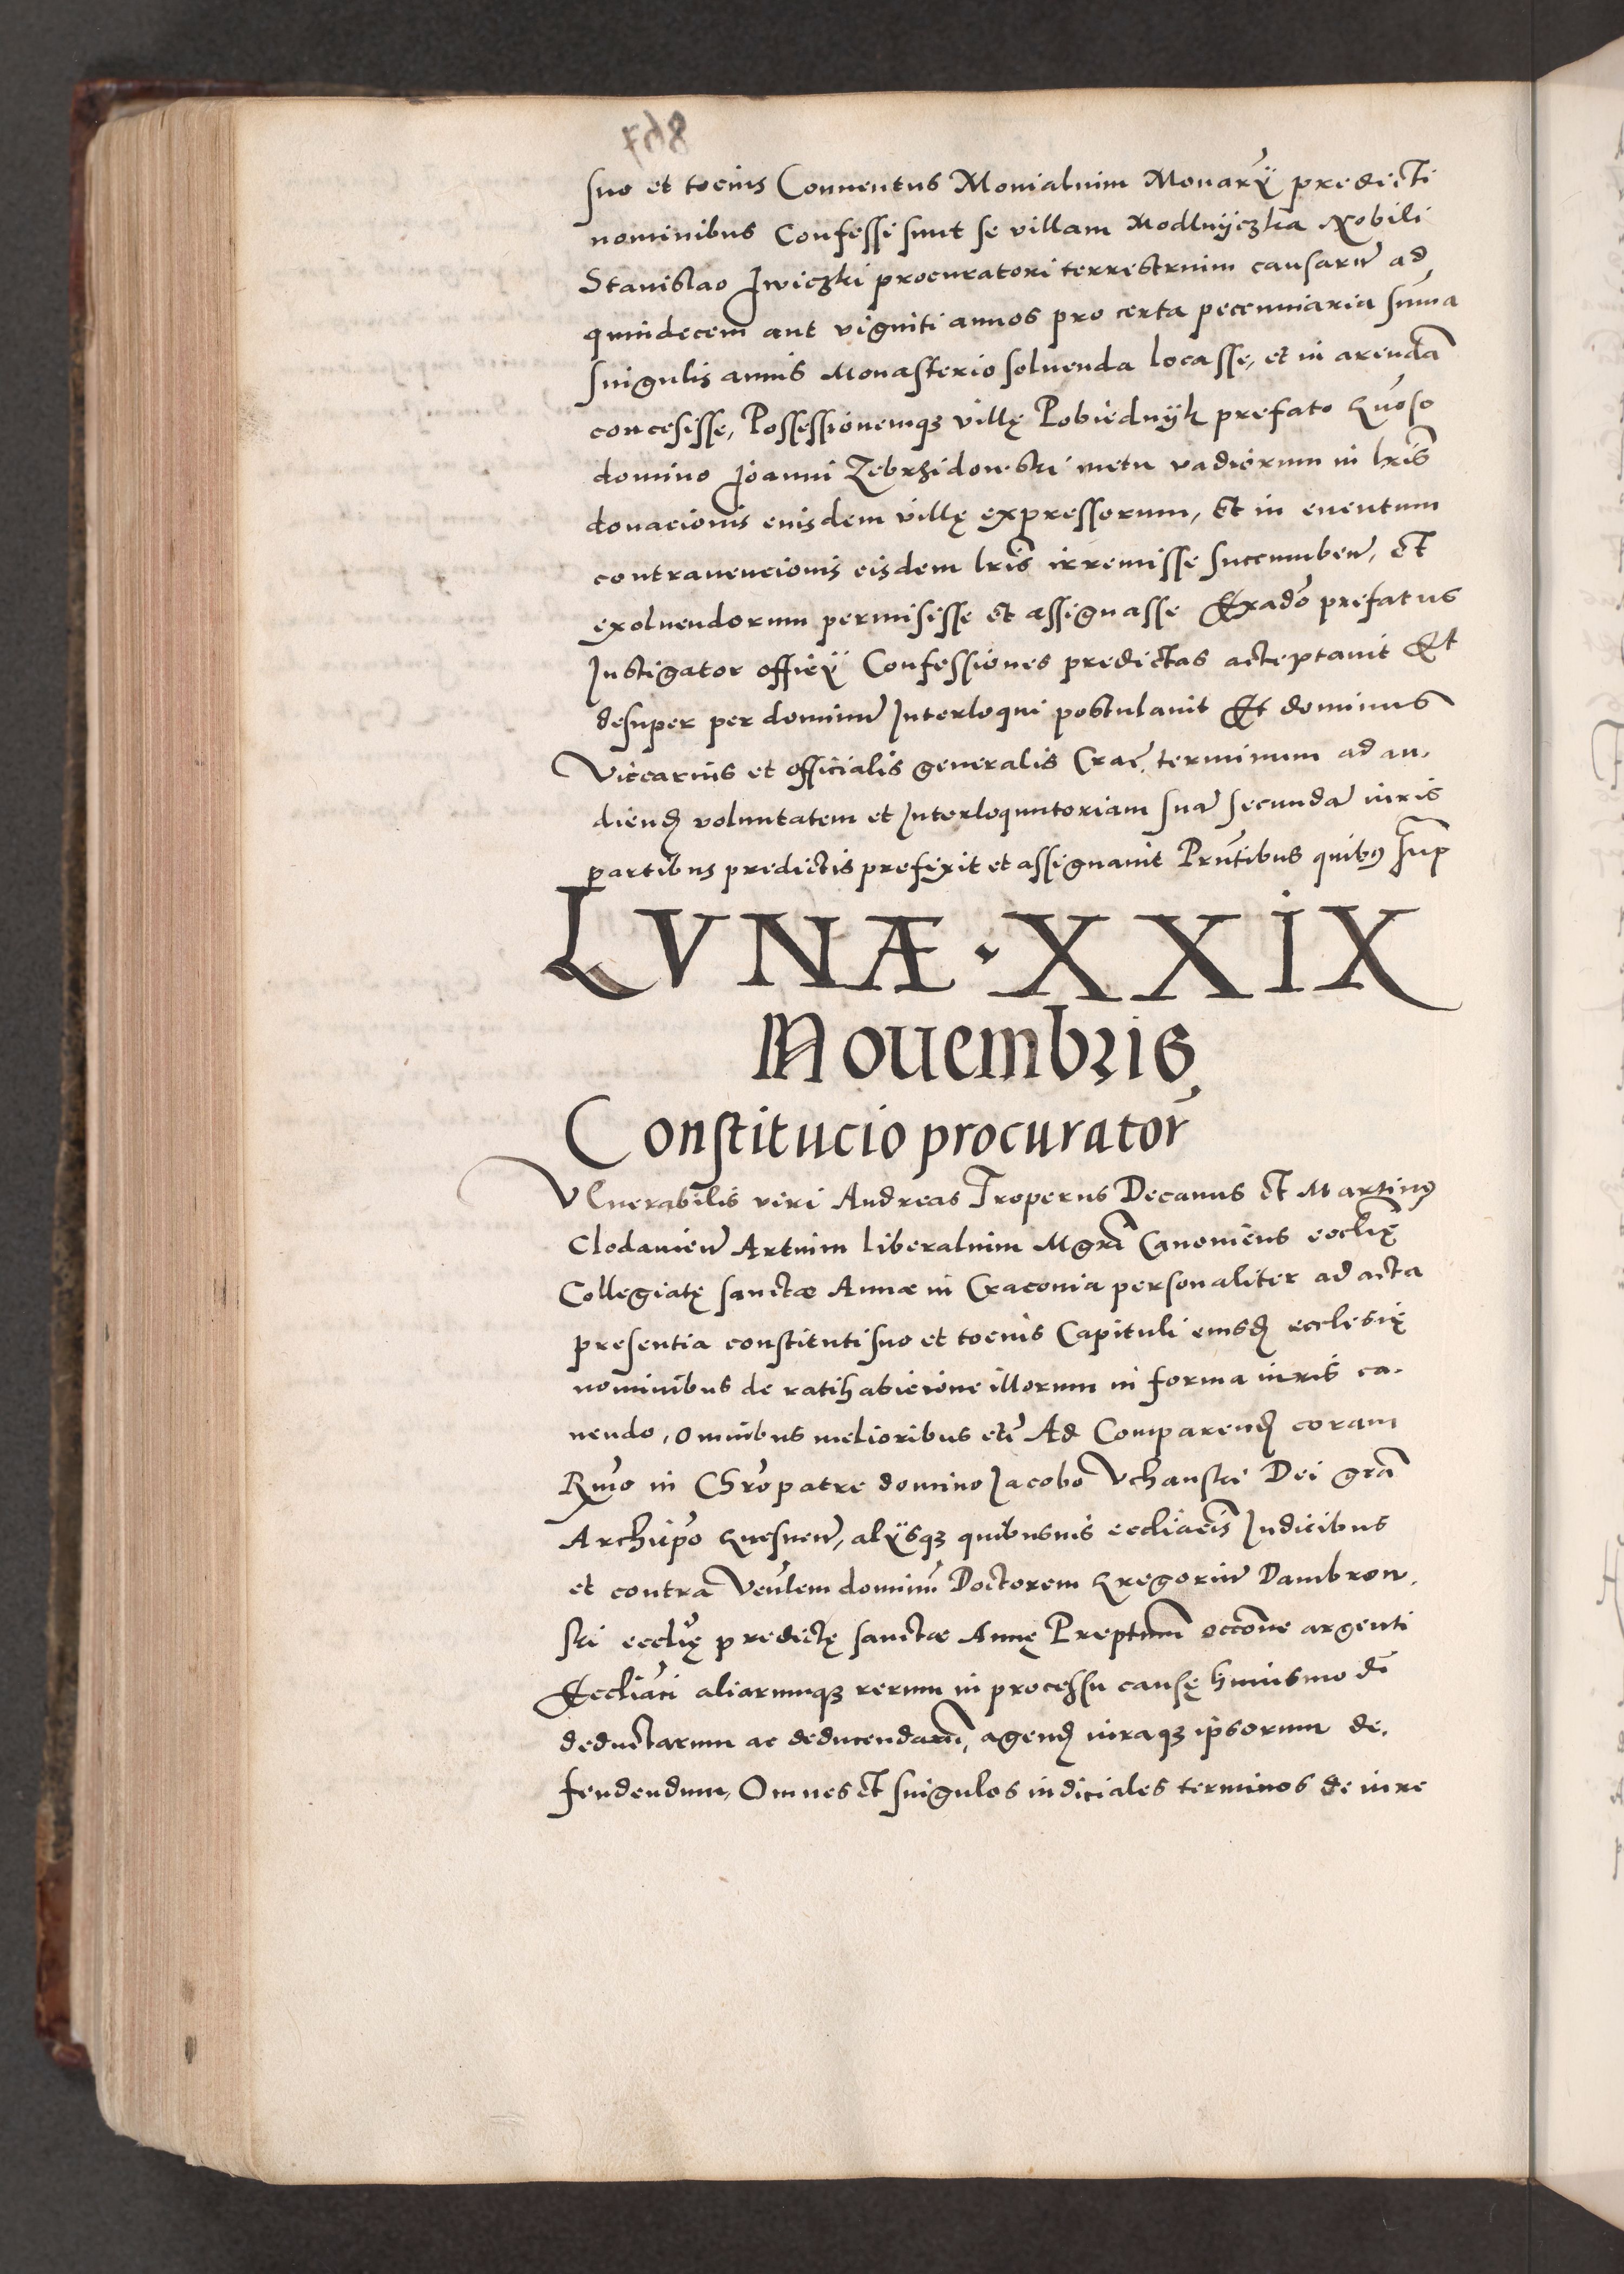 suo et tocius Conuentus Monialium Monarÿ predicti
nominibus Confessi sunt se villam Modlnÿczka Nobili
Stanislao Iwiczki procuratori terrestrium causarũ ad
quindecem aut viginti annos pro certa pecunniaria sum̃a
singulis annis Monasterio soluenda locasse, et in arendã
concesisse, Possessionemqꝫ villę Pobiednÿk prefato Gn̄oso
domino Joanni Zebrzidowski metu vadiorum in lris̃
donacionis eiusdem villę expressorum, Et in euentum
contrauencionis eisdem lris̃ irremisse succumbeñ, et
exoluendorum permisisse et assignasse Ex adũo prefatus
Instigator officÿ Confessiones predictas acceptauit Et
desuper per dominũ Interloqui postulauit Et dominus
Viccarius et officialis generalis Crac̃. terminum ad au-
diend̃ voluntatem et Interloquutoriam suã secundã iuris
partibus predictis prefixit et assignauit Prñtibus quibꝰ sup̃
LVNÆ · XXIX
Nouembris
Constitucio procurator̃
VEnerabilis viri Andreas Troperus Decanus et Martinꝰ
Clodauieñ Artium liberalium Mgrĩ Canonicus ecclię̃
Collegiatę sanctæ Annæ in Cracouia personaliter ad acta
presentia constituti suo et tocius Capituli eiusd̃ ecclesię
nominibus de ratihabicione illorum in forma iuris ca-
uendo, omnibus melioribus etc̃ Ad Comparend̃ coram
Rm̃o in Chrõ patre domino Jacobo Vchanski Dei grã
Archiep̃o Gnesneñ, alÿsqꝫ quibusuis eccliacĩs Iudicibus
et contra Venlẽm dominũ Doctorem Gregoriũ Dambrow-
ski ecclię̃ predictę sanctæ Annę Preptum̃ occõne argenti
Eccliacĩ aliarumqꝫ rerum in processu causę huiusmodĩ
deductarum ac deducendarũ, agend̃ iuraqꝫ ipsorum de-
fendendum, Omnes et singulos iudiciales terminos de iure